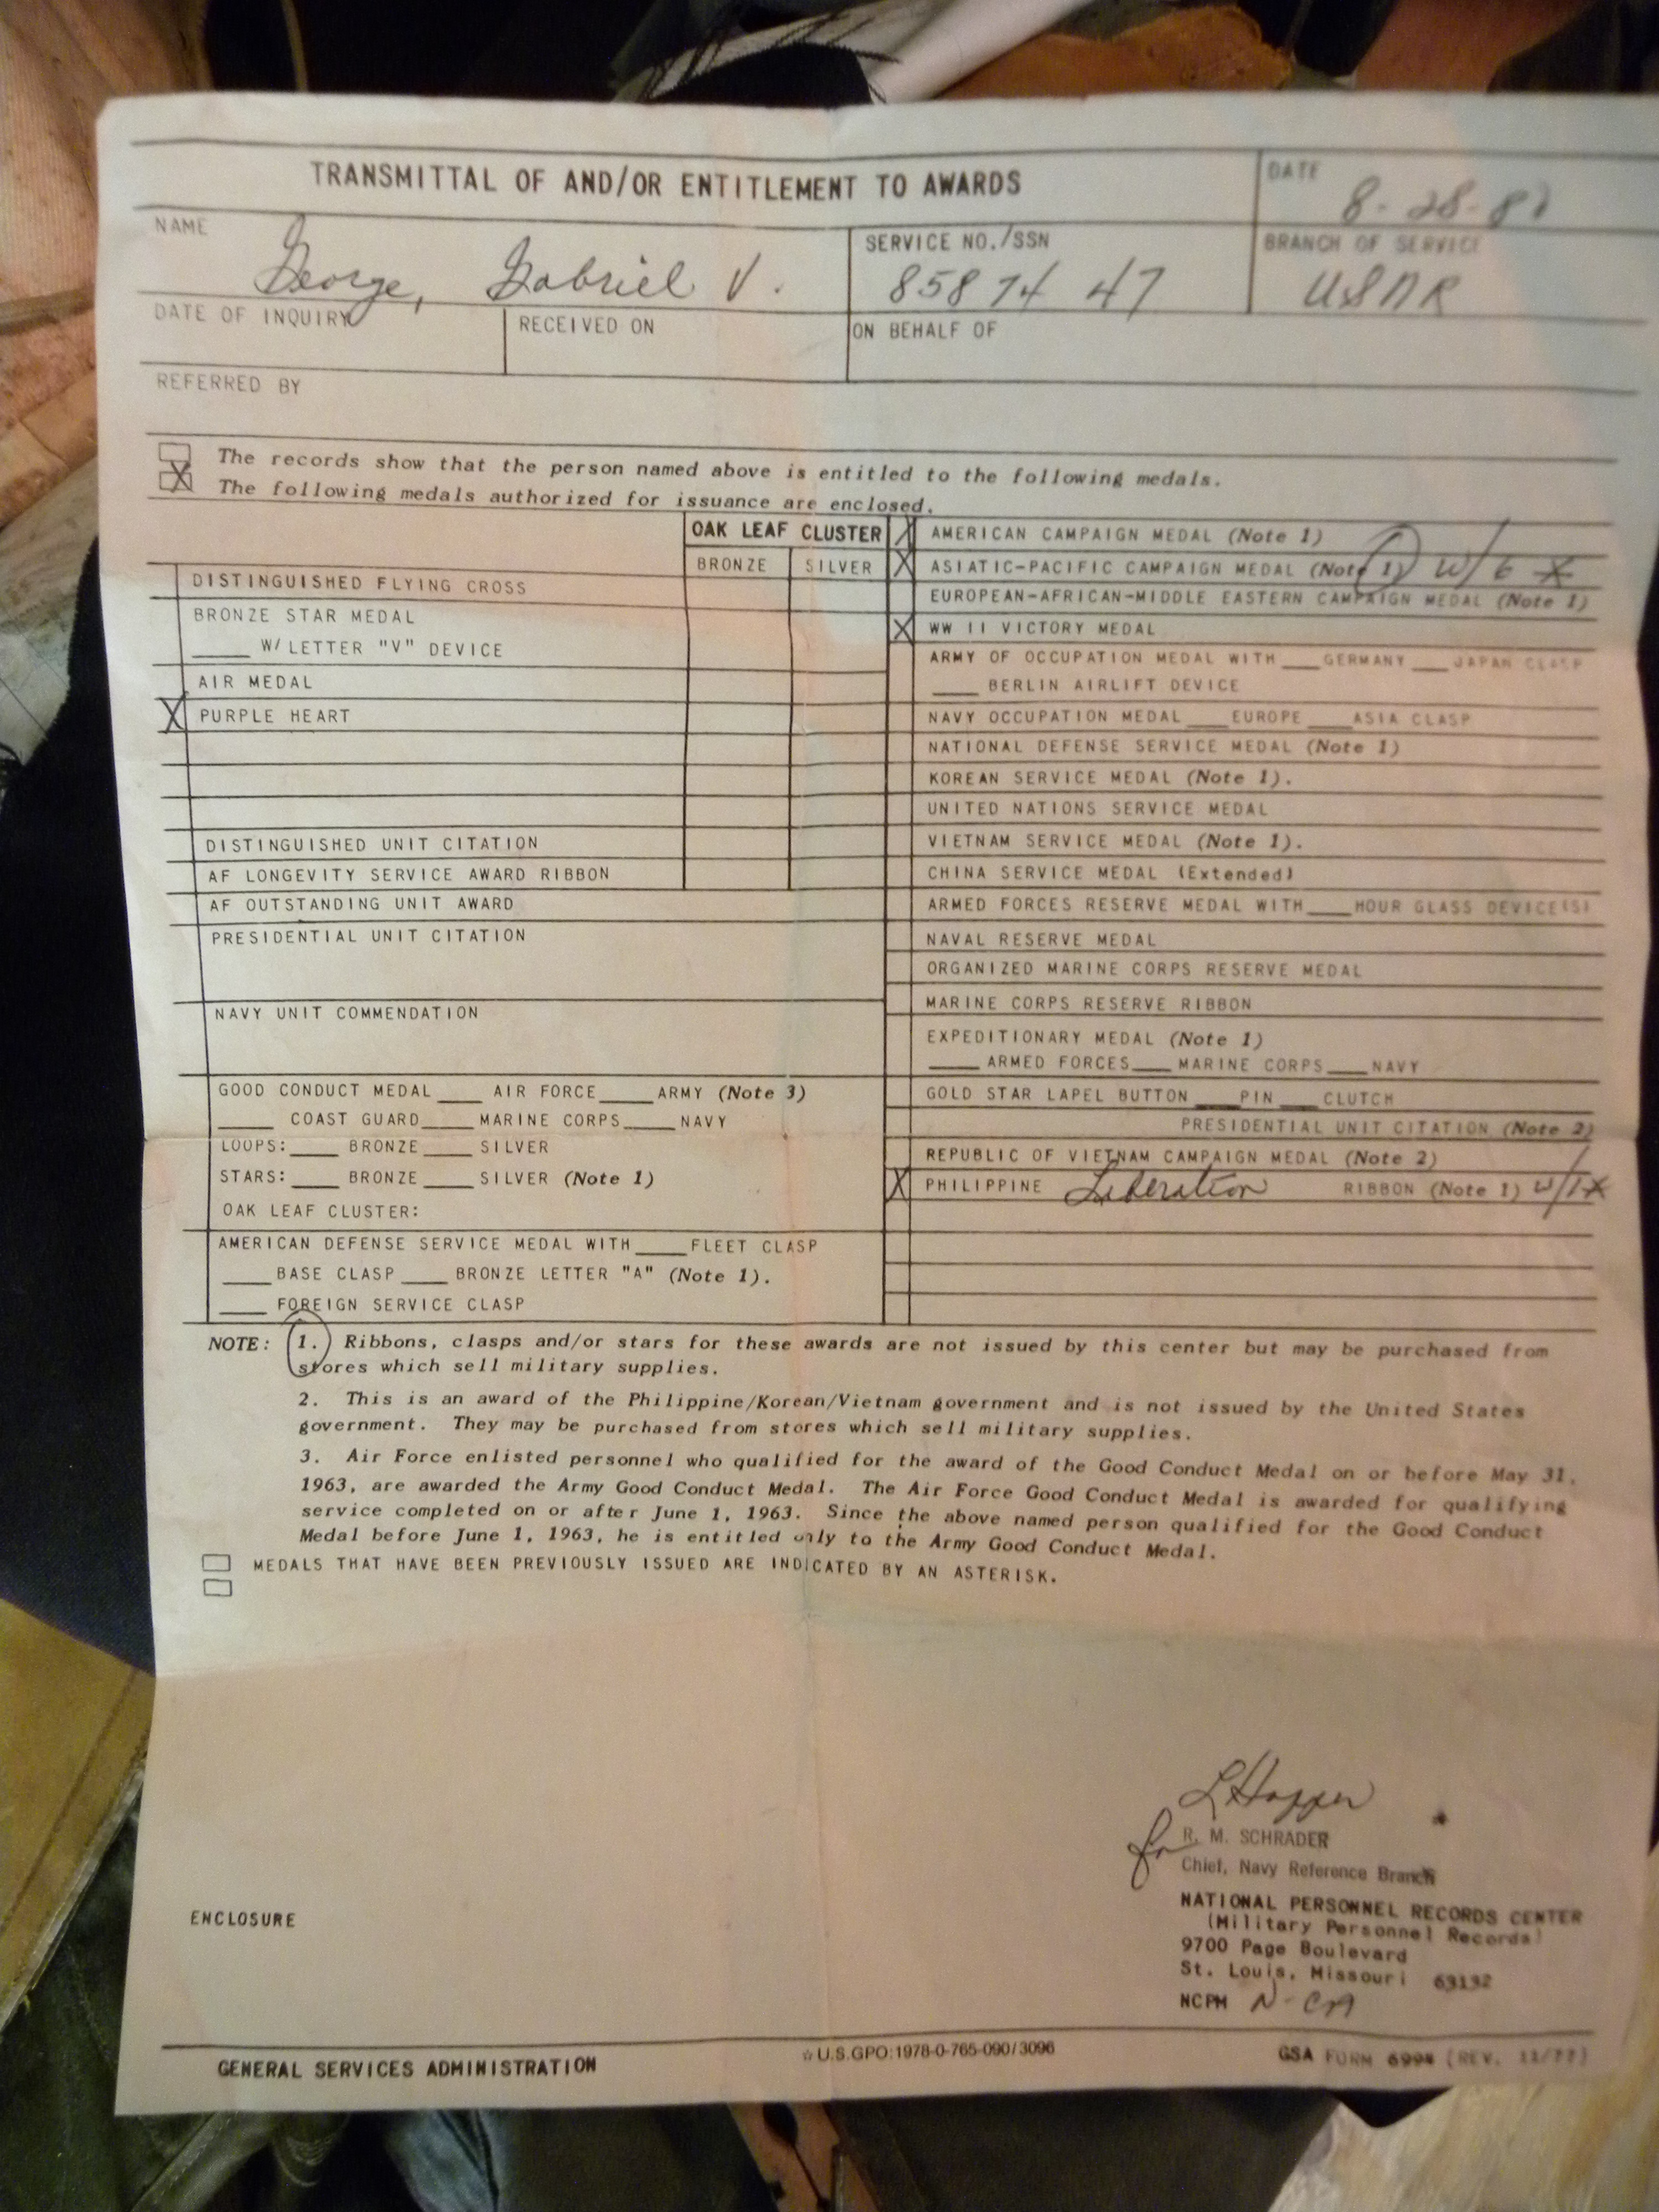 TRANSMITTAL OF AND/OR ENTITLEMENT TO AWARDS
DATE
8-28-81
NAME
George, Gabriel V.
SERVICE NO./SSN
858 74 47
BRANCH OF SERVICE
USNR
DATE OF INQUIRY
RECEIVED ON
ON BEHALF OF
REFERRED BY
The records show that the person named above is entitled to the following medals.
X The following medals authorized for issuance are enclosed.
OAK LEAF CLUSTER
BRONZE SILVER
DISTINGUISHED FLYING CROSS
BRONZE STAR MEDAL
____ W/LETTER "V" DEVICE
AIR MEDAL
X PURPLE HEART
DISTINGUISHED UNIT CITATION
AF LONGEVITY SERVICE AWARD RIBBON
AF OUTSTANDING UNIT AWARD
PRESIDENTIAL UNIT CITATION
NAVY UNIT COMMENDATION
GOOD CONDUCT MEDAL ____ AIR FORCE ____ ARMY (Note 3)
____ COAST GUARD ____ MARINE CORPS ____ NAVY
LOOPS: ____ BRONZE ____ SILVER
STARS: ____ BRONZE ____ SILVER (Note 1)
OAK LEAF CLUSTER:
AMERICAN DEFENSE SERVICE MEDAL WITH ____ FLEET CLASP
____ BASE CLASP ____ BRONZE LETTER "A" (Note 1).
____ FOREIGN SERVICE CLASP
X AMERICAN CAMPAIGN MEDAL (Note 1)
X ASIATIC-PACIFIC CAMPAIGN MEDAL (Note 1) W/6
EUROPEAN-AFRICAN-MIDDLE EASTERN CAMPAIGN MEDAL (Note 1)
X WW II VICTORY MEDAL
ARMY OF OCCUPATION MEDAL WITH ____ GERMANY ____ JAPAN CLASP
____ BERLIN AIRLIFT DEVICE
NAVY OCCUPATION MEDAL ____ EUROPE ____ ASIA CLASP
NATIONAL DEFENSE SERVICE MEDAL (Note 1)
KOREAN SERVICE MEDAL (Note 1).
UNITED NATIONS SERVICE MEDAL
VIETNAM SERVICE MEDAL (Note 1).
CHINA SERVICE MEDAL (Extended)
ARMED FORCES RESERVE MEDAL WITH ____ HOUR GLASS DEVICE(S)
NAVAL RESERVE MEDAL
ORGANIZED MARINE CORPS RESERVE MEDAL
MARINE CORPS RESERVE RIBBON
EXPEDITIONARY MEDAL (Note 1)
____ ARMED FORCES ____ MARINE CORPS ____ NAVY
GOLD STAR LAPEL BUTTON ____ PIN ____ CLUTCH
PRESIDENTIAL UNIT CITATION (Note 2)
REPUBLIC OF VIETNAM CAMPAIGN MEDAL (Note 2)
X PHILIPPINE Liberation RIBBON (Note 1) W/1
NOTE: 1. Ribbons, clasps and/or stars for these awards are not issued by this center but may be purchased from
stores which sell military supplies.
2. This is an award of the Philippine/Korean/Vietnam government and is not issued by the United States
government. They may be purchased from stores which sell military supplies.
3. Air Force enlisted personnel who qualified for the award of the Good Conduct Medal on or before May 31,
1963, are awarded the Army Good Conduct Medal. The Air Force Good Conduct Medal is awarded for qualifying
service completed on or after June 1, 1963. Since the above named person qualified for the Good Conduct
Medal before June 1, 1963, he is entitled only to the Army Good Conduct Medal.
MEDALS THAT HAVE BEEN PREVIOUSLY ISSUED ARE INDICATED BY AN ASTERISK.
L Hopper
for R. M. SCHRADER
Chief, Navy Reference Branch
NATIONAL PERSONNEL RECORDS CENTER
(Military Personnel Records)
9700 Page Boulevard
St. Louis, Missouri 63132
NCPM N-CA
ENCLOSURE
GENERAL SERVICES ADMINISTRATION
☆ U.S.GPO:1978-0-765-090/3096
GSA FORM 6994 (REV. 11/77)